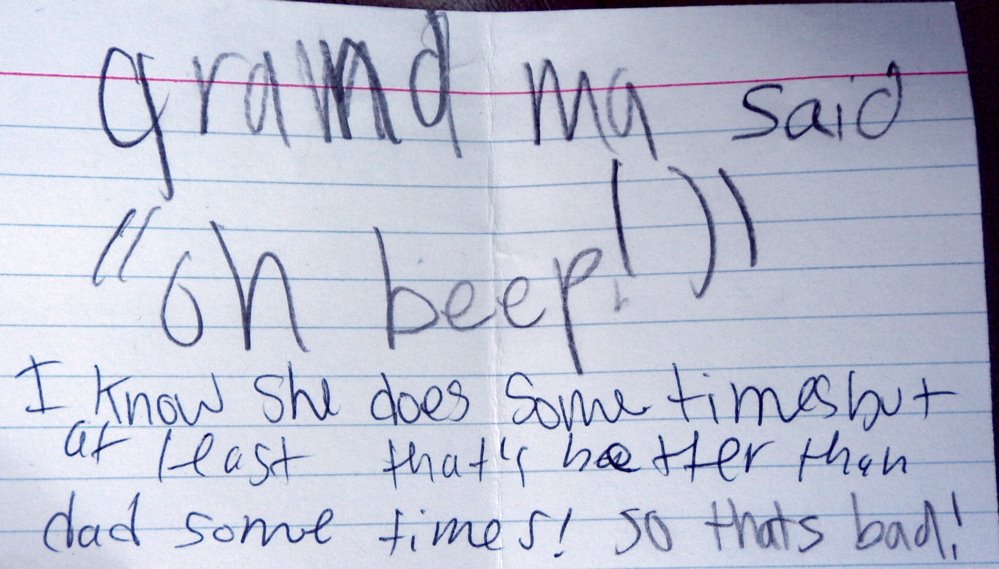 grand ma said
"oh beep!"
I know she does some times but
at least that's better than
dad some times! so thats bad!